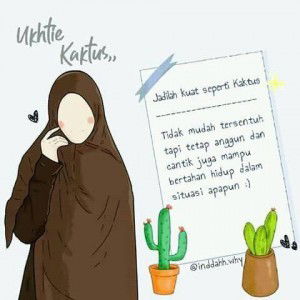 Ukhtie
Kaktus,,
Jadilah kuat seperti Kaktus
Tidak mudah tersentuh
tapi tetap anggun dan
cantik juga mampu
bertahan hidup dalam
situasi apapun :)
@inddahh.why